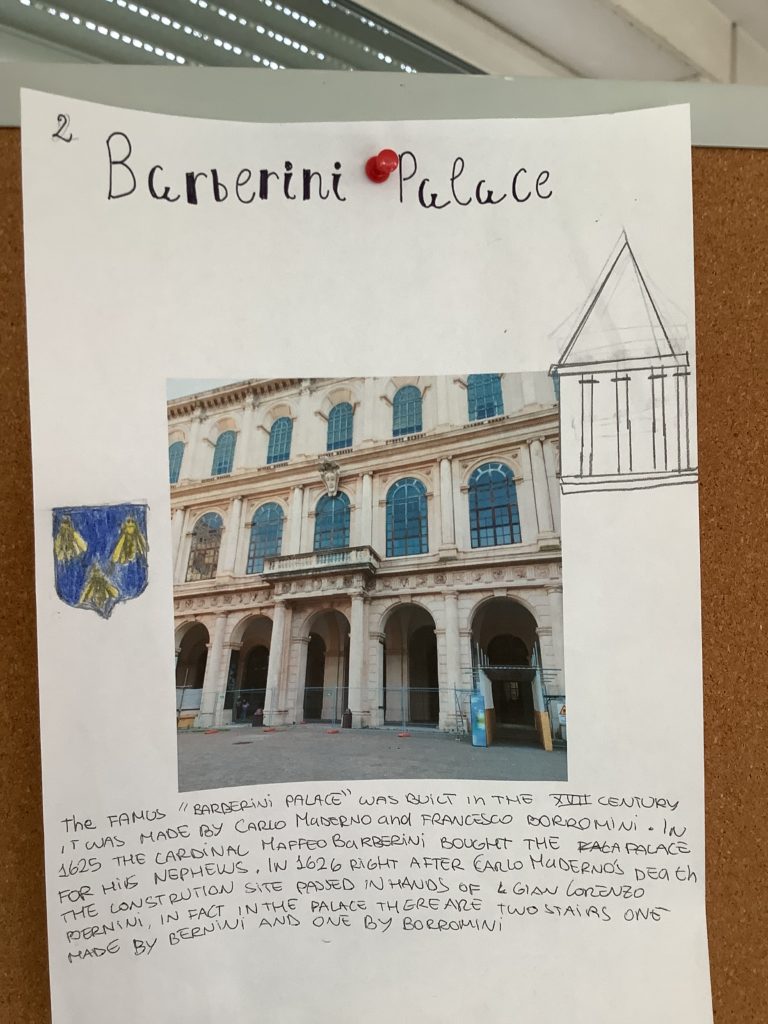 2
Barberini Palace
The FAMUS "BARBERINI PALACE" WAS BUILT in THE XVII CENTURY
, IT WAS MADE BY CARLO MADERNO and FRANCESCO BORROMINI. IN
1625 THE CARDINAL MAFFEO BARBERINI BOUGHT THE PALACE
FOR HIS NEPHEWS. IN 1626 RIGHT AFTER CARLO MADERNO'S DEATH
THE CONSTRUTION SITE PASSED IN HANDS OF GIAN LORENZO
BERNINI, IN FACT IN THE PALACE THERE ARE TWO STAIRS ONE
MADE BY BERNINI AND ONE BY BORROMINI